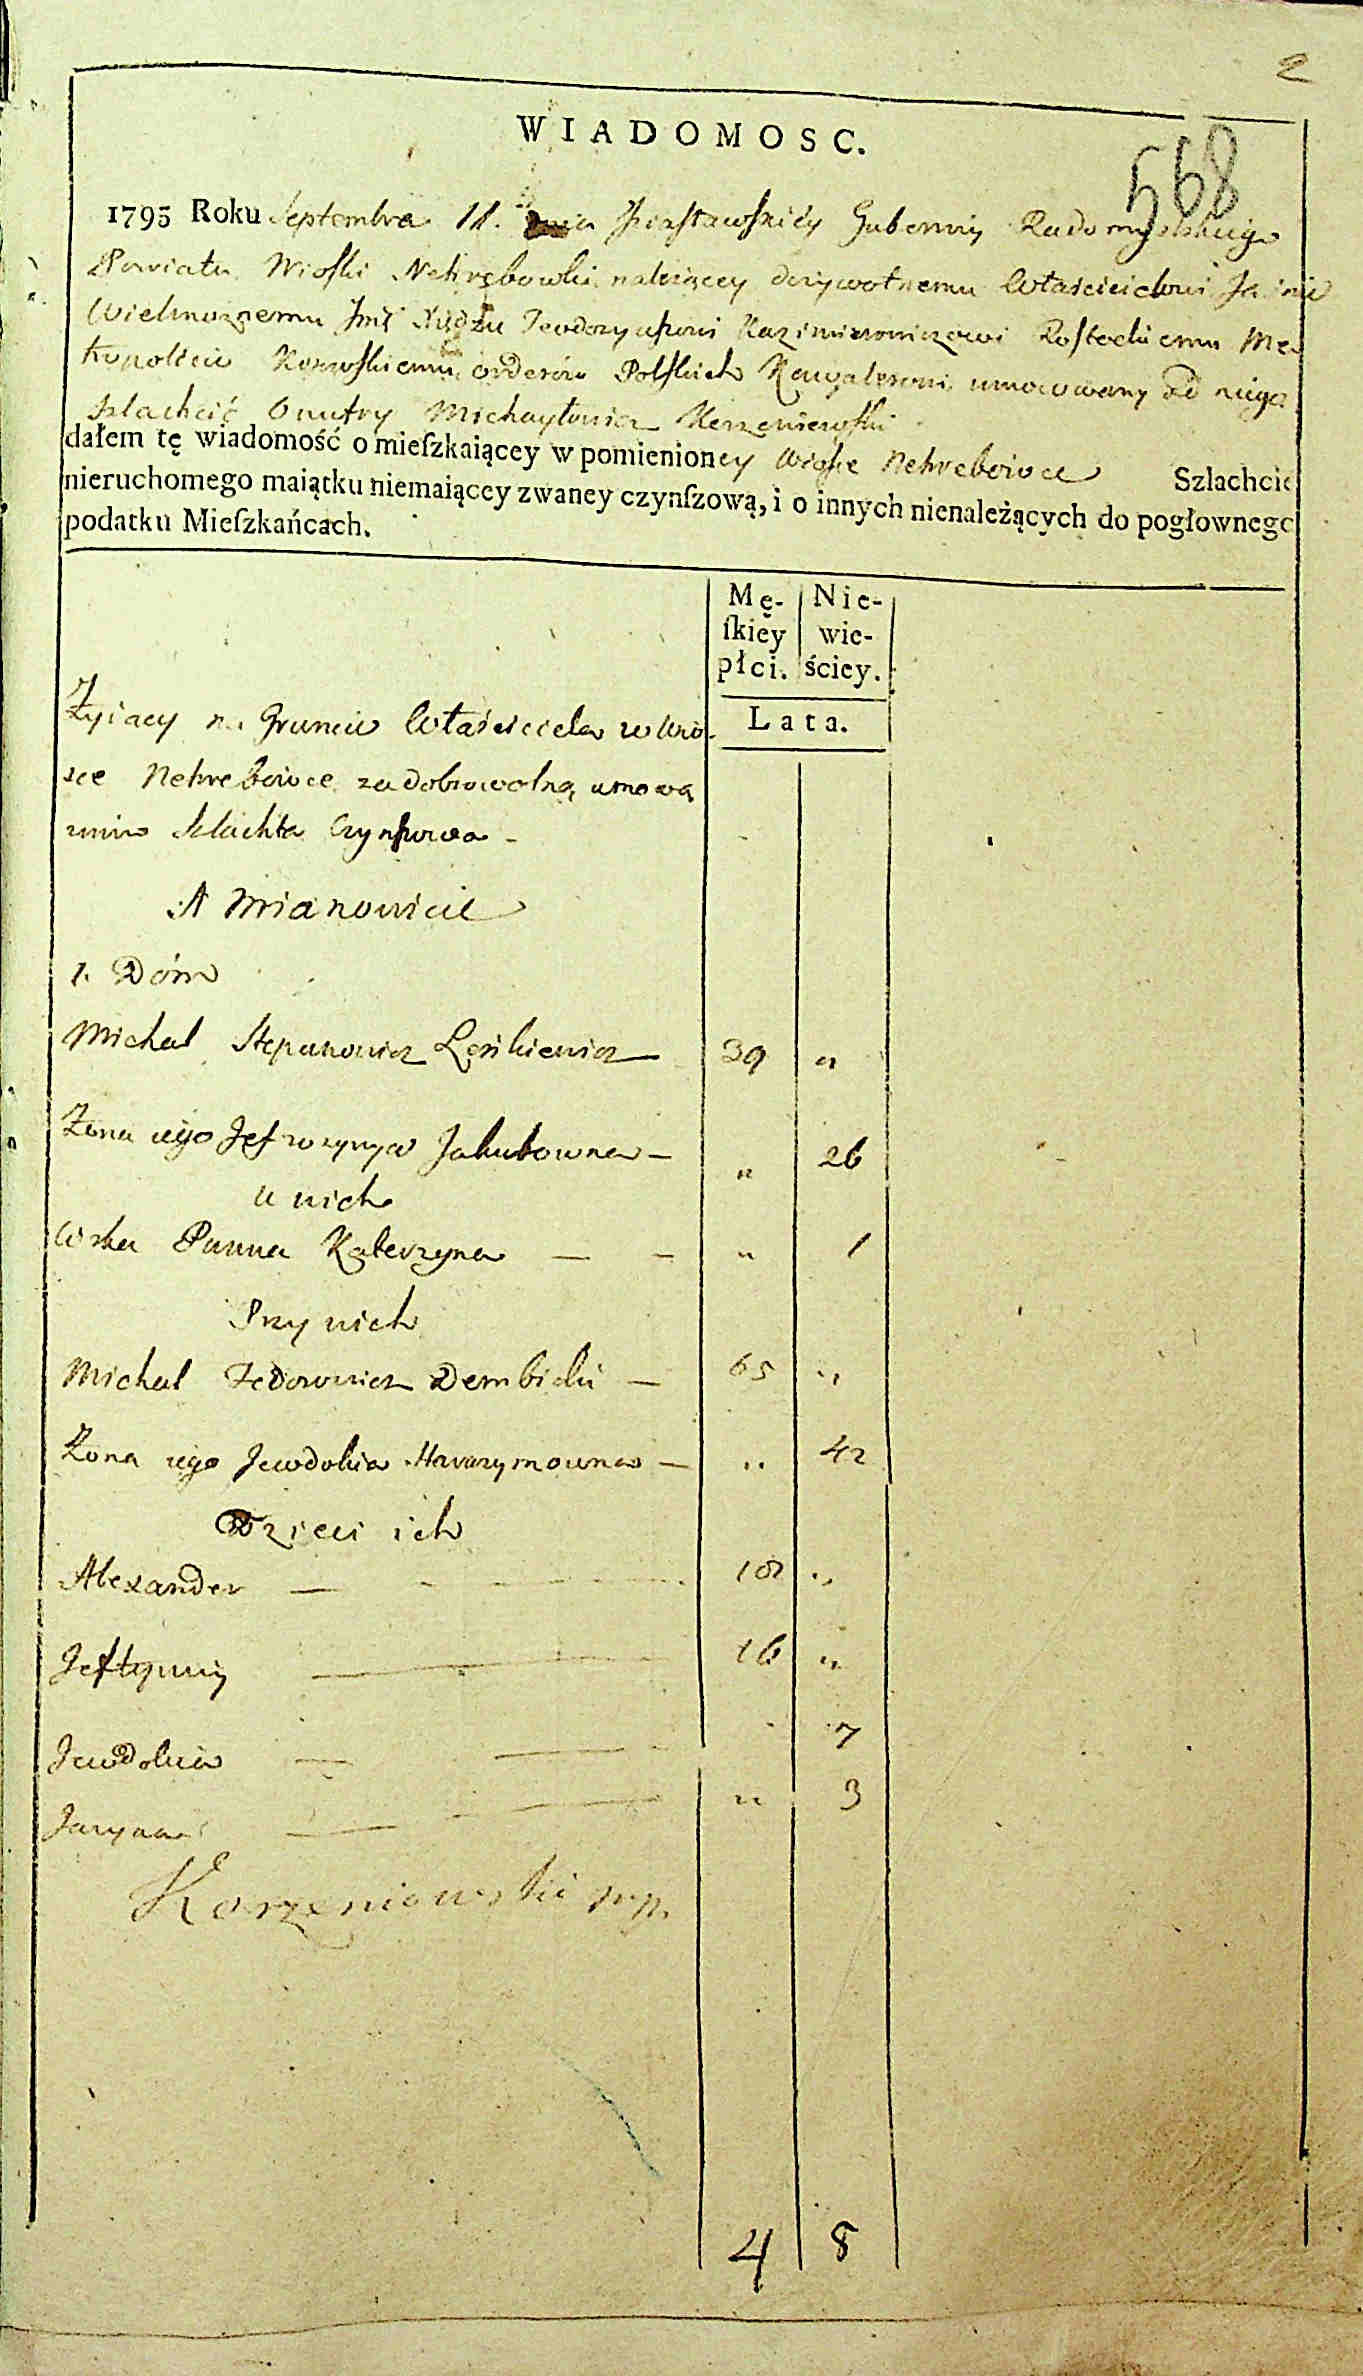 2
WIADOMOSC.
568
1795 Roku Septembra 11. dnia Iziasławskiey Gubernij Radomyslskiego
Powiatu Wioski Nehrębowki należącey dożywotnemu Właścicielowi Jaśnie
Wielmożnemu Jmć Xiędzu Teodozyuszowi Kazimirowiczowi Rostockiemu Me-
tropolicie Kijowskiemu, orderów Polskich Kawalerowi, umocowany od niego
szlachcić Onufry Michayłowicz Korzeniewski
dałem tę wiadomość o mieſzkaiącey w pomienioney Wiosce Nehrebowce Szlachcie
nieruchomego maiątku niemaiącey zwaney czynſzową, i o innych nienależących do pogłownego
podatku Mieſzkańcach.
Mę- Nie-
ſkiey wie-
płci. ściey.
Lata.
Żyiący na Gruncie Właściciela w Wio-
sce Nehrebowce za dobrowolną umową
Szlachta Czynszowa -
A Mianowicie
1. Dóm
Michał Stepanowicz Leśkiewicz 39 "
Żona iego Jefrozynya Jakubowna - " 26
u nich
Corka Panna Katerzyna — - " 1
Przy nich
Michał Fedorowicz Dembicki — 65 "
Żona iego Jewdokia Harasymowna — " 42
Dzieci ich
Alexander — 18 "
Jeftymij — 16 "
Jewdokia — 7
Jaryna — " 3
Korzeniowski mp.
4 8